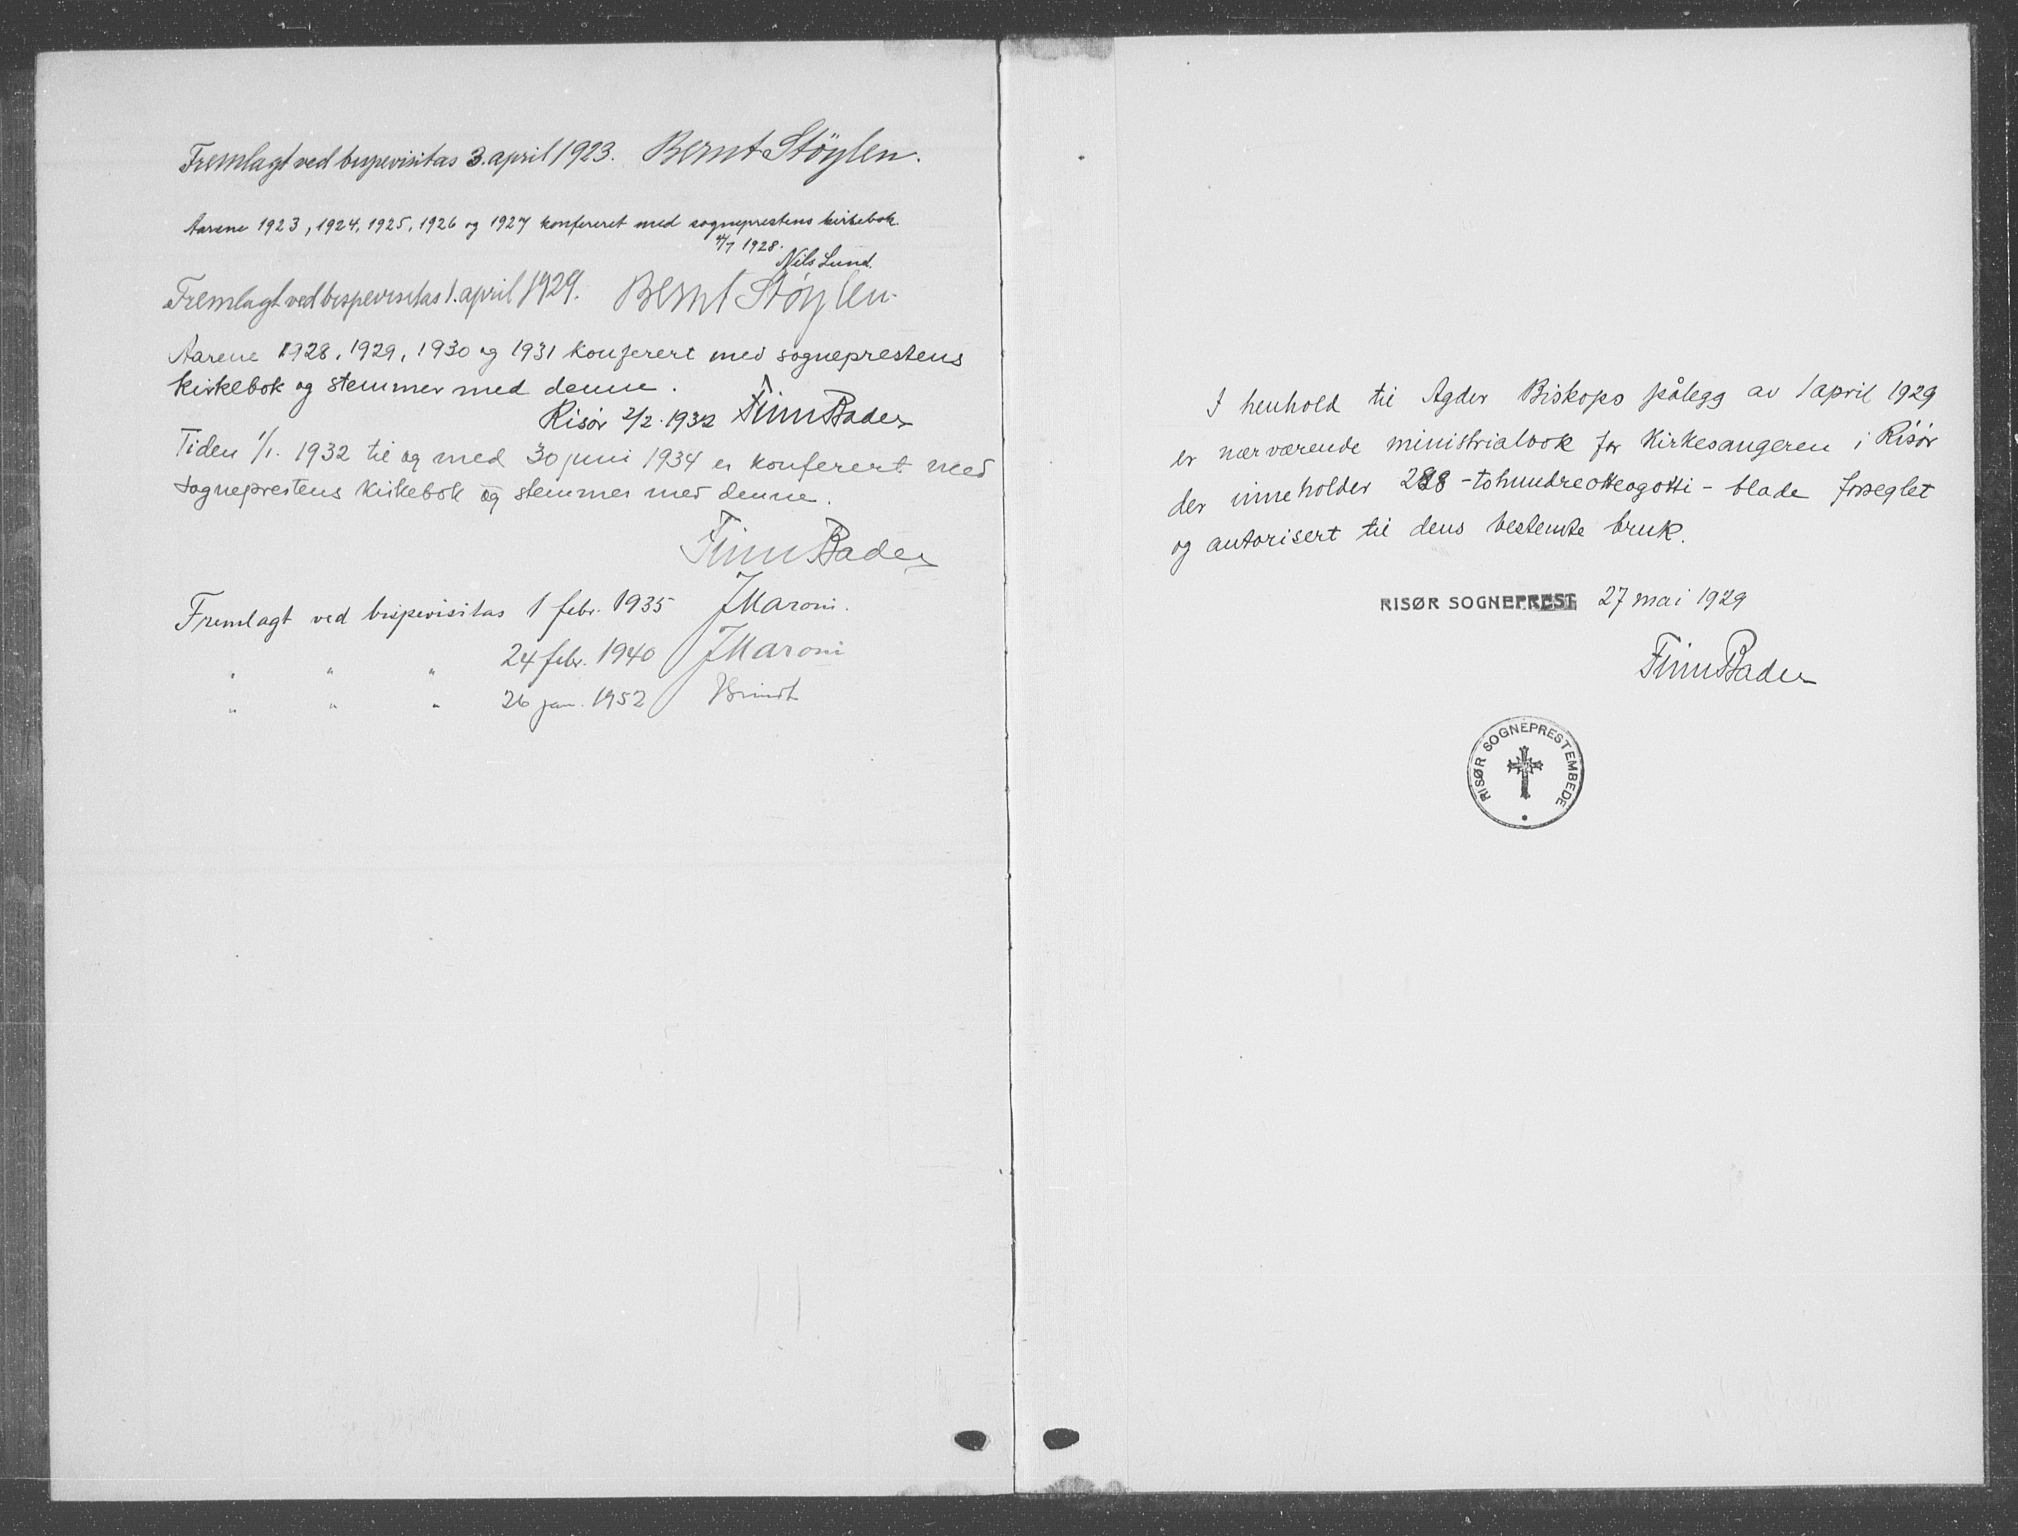 Fremlagt ved bispevisitas 3. april 1923. Bernt Støylen.
Aarene 1923, 1924, 1925, 1926 og 1927 konfereret med sogneprestens kirkebok.
1928.
Nils Lund.
Fremlagt ved bispevisitas 1. april 1929. Bernt Støylen
Aarene 1928, 1929, 1930 og 1931 konferert med sogneprestens
kirkebok og stemmer med denne.
Risør 2/2. 1932 Finn Bader
Tiden 1/1. 1932 til og med 30 juni 1934 er konferert med
sogneprestens kirkebok og stemmer med denne.
Finn Bader
Fremlagt ved bispevisitas 1 febr. 1935 JMaroni.
" " " 24 febr. 1940 JMaroni
" " " 26 jan. 1952
I henhold til Agder Biskops pålegg av 1 april 1929
er nærværende ministrialbok for Kirkesangeren i Risør
der inneholder 288 - tohundreotteogotti - blade forseglet
og autorisert til dens bestemte bruk.
RISØR SOGNEPREST 27 mai 1929
Finn Bader
RISØR SOGNEPRESTEMBEDE